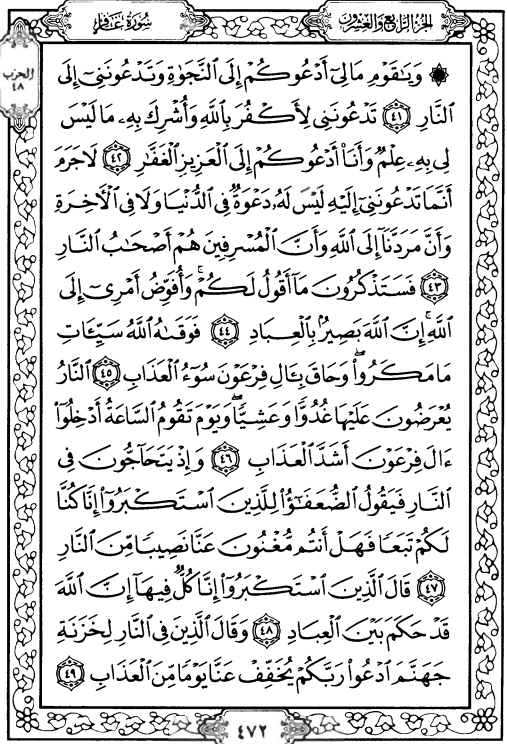 سُورَةُ غَافِرٍ
الجُزْءُ الرَّابِعُ وَالعِشْرُونَ
الحزب
٤٨
۞ وَيَٰقَوْمِ مَا لِىٓ أَدْعُوكُمْ إِلَى ٱلنَّجَوٰةِ وَتَدْعُونَنِىٓ إِلَى
ٱلنَّارِ ٤١ تَدْعُونَنِى لِأَكْفُرَ بِٱللَّهِ وَأُشْرِكَ بِهِۦ مَا لَيْسَ
لِى بِهِۦ عِلْمٌ وَأَنَا۠ أَدْعُوكُمْ إِلَى ٱلْعَزِيزِ ٱلْغَفَّٰرِ ٤٢ لَا جَرَمَ
أَنَّمَا تَدْعُونَنِىٓ إِلَيْهِ لَيْسَ لَهُۥ دَعْوَةٌ فِى ٱلدُّنْيَا وَلَا فِى ٱلْأٓخِرَةِ
وَأَنَّ مَرَدَّنَآ إِلَى ٱللَّهِ وَأَنَّ ٱلْمُسْرِفِينَ هُمْ أَصْحَٰبُ ٱلنَّارِ
٤٣ فَسَتَذْكُرُونَ مَآ أَقُولُ لَكُمْ ۚ وَأُفَوِّضُ أَمْرِىٓ إِلَى
ٱللَّهِ ۚ إِنَّ ٱللَّهَ بَصِيرٌۢ بِٱلْعِبَادِ ٤٤ فَوَقَىٰهُ ٱللَّهُ سَيِّـَٔاتِ
مَا مَكَرُوا۟ ۖ وَحَاقَ بِـَٔالِ فِرْعَوْنَ سُوٓءُ ٱلْعَذَابِ ٤٥ ٱلنَّارُ
يُعْرَضُونَ عَلَيْهَا غُدُوًّا وَعَشِيًّا ۖ وَيَوْمَ تَقُومُ ٱلسَّاعَةُ أَدْخِلُوٓا۟
ءَالَ فِرْعَوْنَ أَشَدَّ ٱلْعَذَابِ ٤٦ وَإِذْ يَتَحَآجُّونَ فِى
ٱلنَّارِ فَيَقُولُ ٱلضُّعَفَٰٓؤُا۟ لِلَّذِينَ ٱسْتَكْبَرُوٓا۟ إِنَّا كُنَّا
لَكُمْ تَبَعًا فَهَلْ أَنتُم مُّغْنُونَ عَنَّا نَصِيبًا مِّنَ ٱلنَّارِ
٤٧ قَالَ ٱلَّذِينَ ٱسْتَكْبَرُوٓا۟ إِنَّا كُلٌّ فِيهَآ إِنَّ ٱللَّهَ
قَدْ حَكَمَ بَيْنَ ٱلْعِبَادِ ٤٨ وَقَالَ ٱلَّذِينَ فِى ٱلنَّارِ لِخَزَنَةِ
جَهَنَّمَ ٱدْعُوا۟ رَبَّكُمْ يُخَفِّفْ عَنَّا يَوْمًا مِّنَ ٱلْعَذَابِ ٤٩
٤٧٢